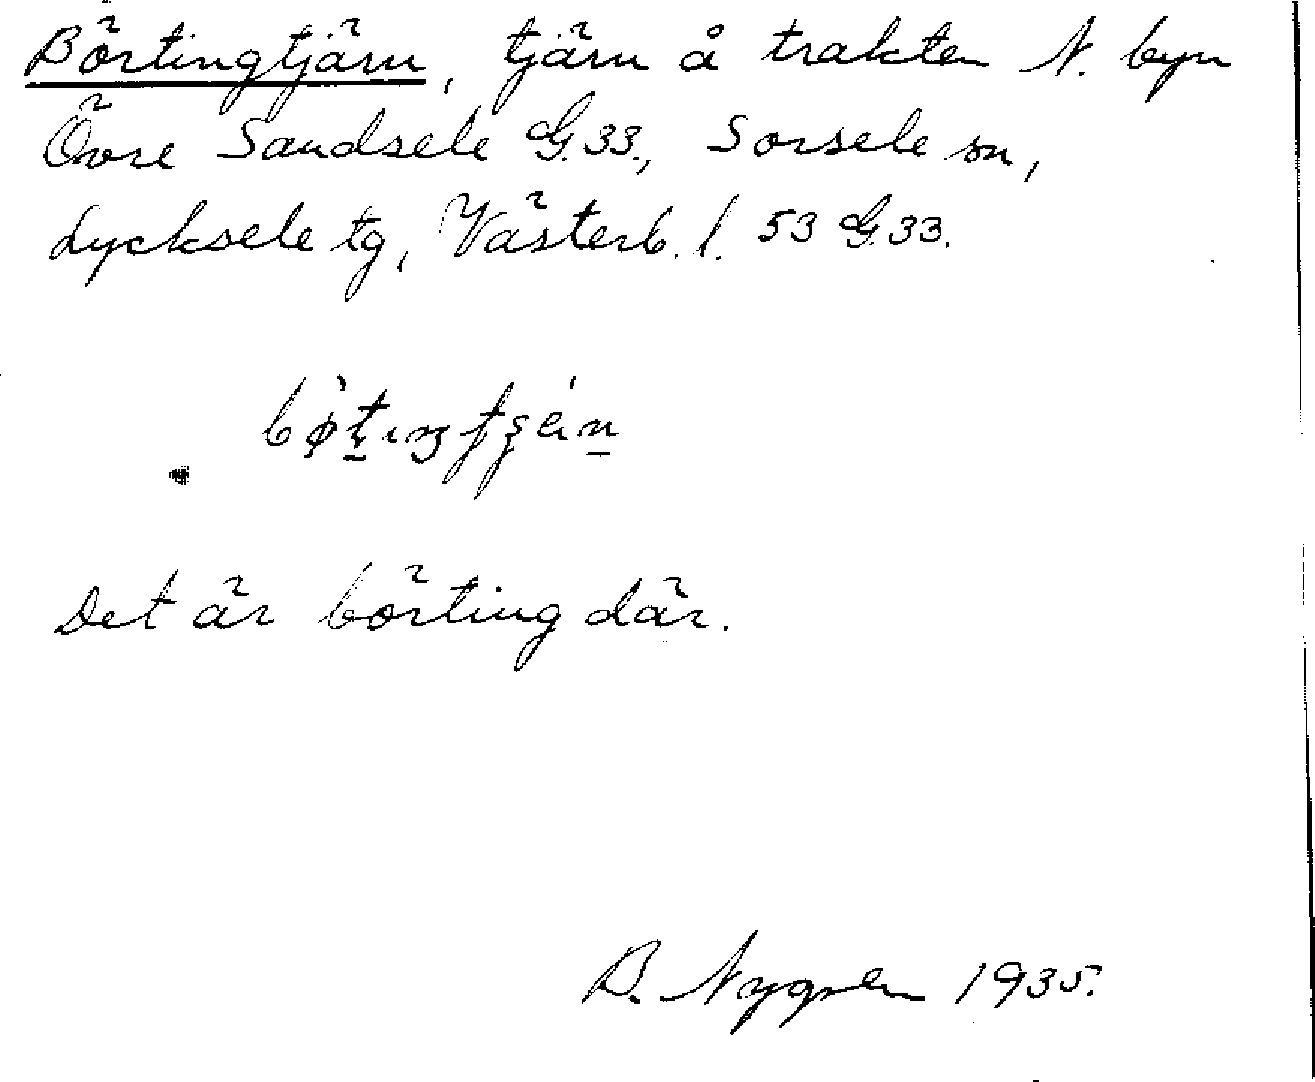 Börtingtjärn, tjärn å trakten N. byn
Övre Sandsele G.33., Sorsele sn,
Lycksele tg, Västerb. l. 53 G.33.
Det är börting där.
B. Nygren 1935.